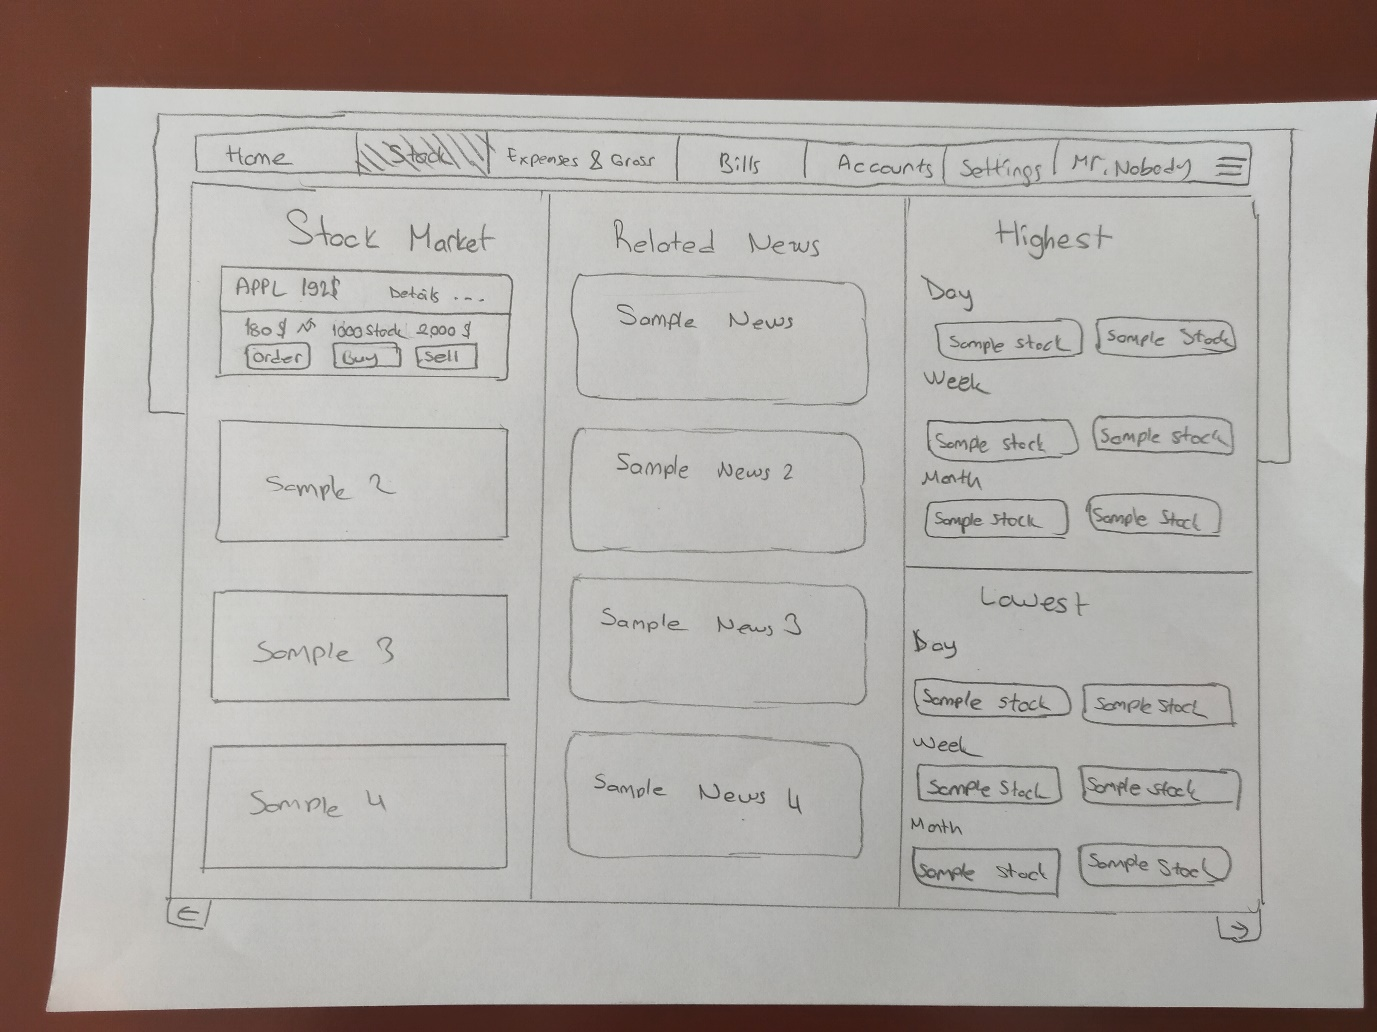 Home Stock Expenses & Gross Bills Accounts Settings Mr. Nobody
Stock Market
APPL 192$ Details ...
180 $ 1000 Stock 2,000 $
Order Buy Sell
Sample 2
Sample 3
Sample 4
Related News
Sample News
Sample News 2
Sample News 3
Sample News 4
Highest
Day
Sample stock Sample Stock
Week
Sample stock Sample stock
Month
Sample stock Sample Stock
Lowest
Day
Sample stock Sample stock
Week
Sample Stock Sample stock
Month
Sample stock Sample Stock